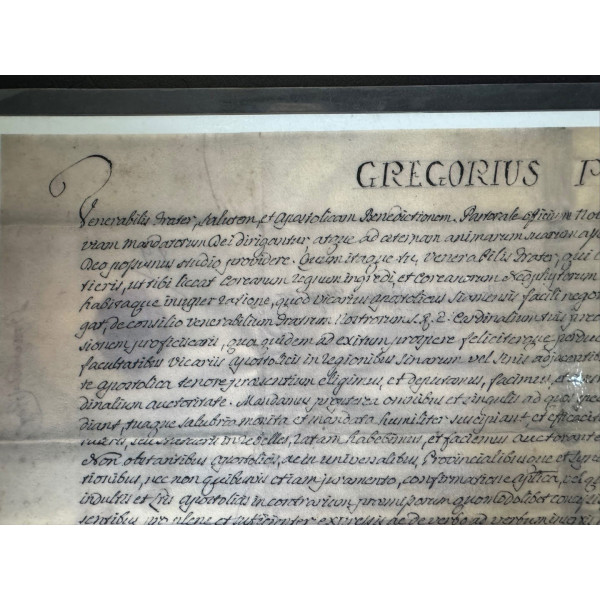 GREGORIUS P
Venerabilis Frater, Salutem, et Apostolicam Benedictionem. Pastorale officium
viam Mandatorum Dei dirigantur, atque ad æternam animarum suarum
Deo possumus studio providere. Quum itaque tu, Venerabilis Frater, qui
ut tibi liceat Coreanum Regnum ingredi, et Coreanorum Neophytorum
habitaque insuper ratione, quod Vicarius Apostolicus Siamensis facili
de consilio Venerabilium Fratrum Nostrorum S. R. E. Cardinalium
sionem proficiscaris, qua quidem ad exitum prospere, feliciterque
facultatibus Vicariis Apostolicis in Regionibus Sinarum vel Sinis
te Apostolica tenore præsentium eligimus, et deputamus, facimus, et
dinalium auctoritate. Mandamus propterea omnibus et singulis ad quos
diant, tuaque salubria monita et mandata humiliter suscipiant, et
in rebelles, ratam habebimus, et faciemus auctorante
Non obstantibus Apostolicis, ac in universalibus, Provincialibusque et
tionibus, nec non quibusvis etiam juramento, confirmatione Aplica, vel
indultis et Lris Apostolicis in contrarium præmissorum quomodolibet
sentibus pro plene et sufficienter expressis ac de verbo ad verbum